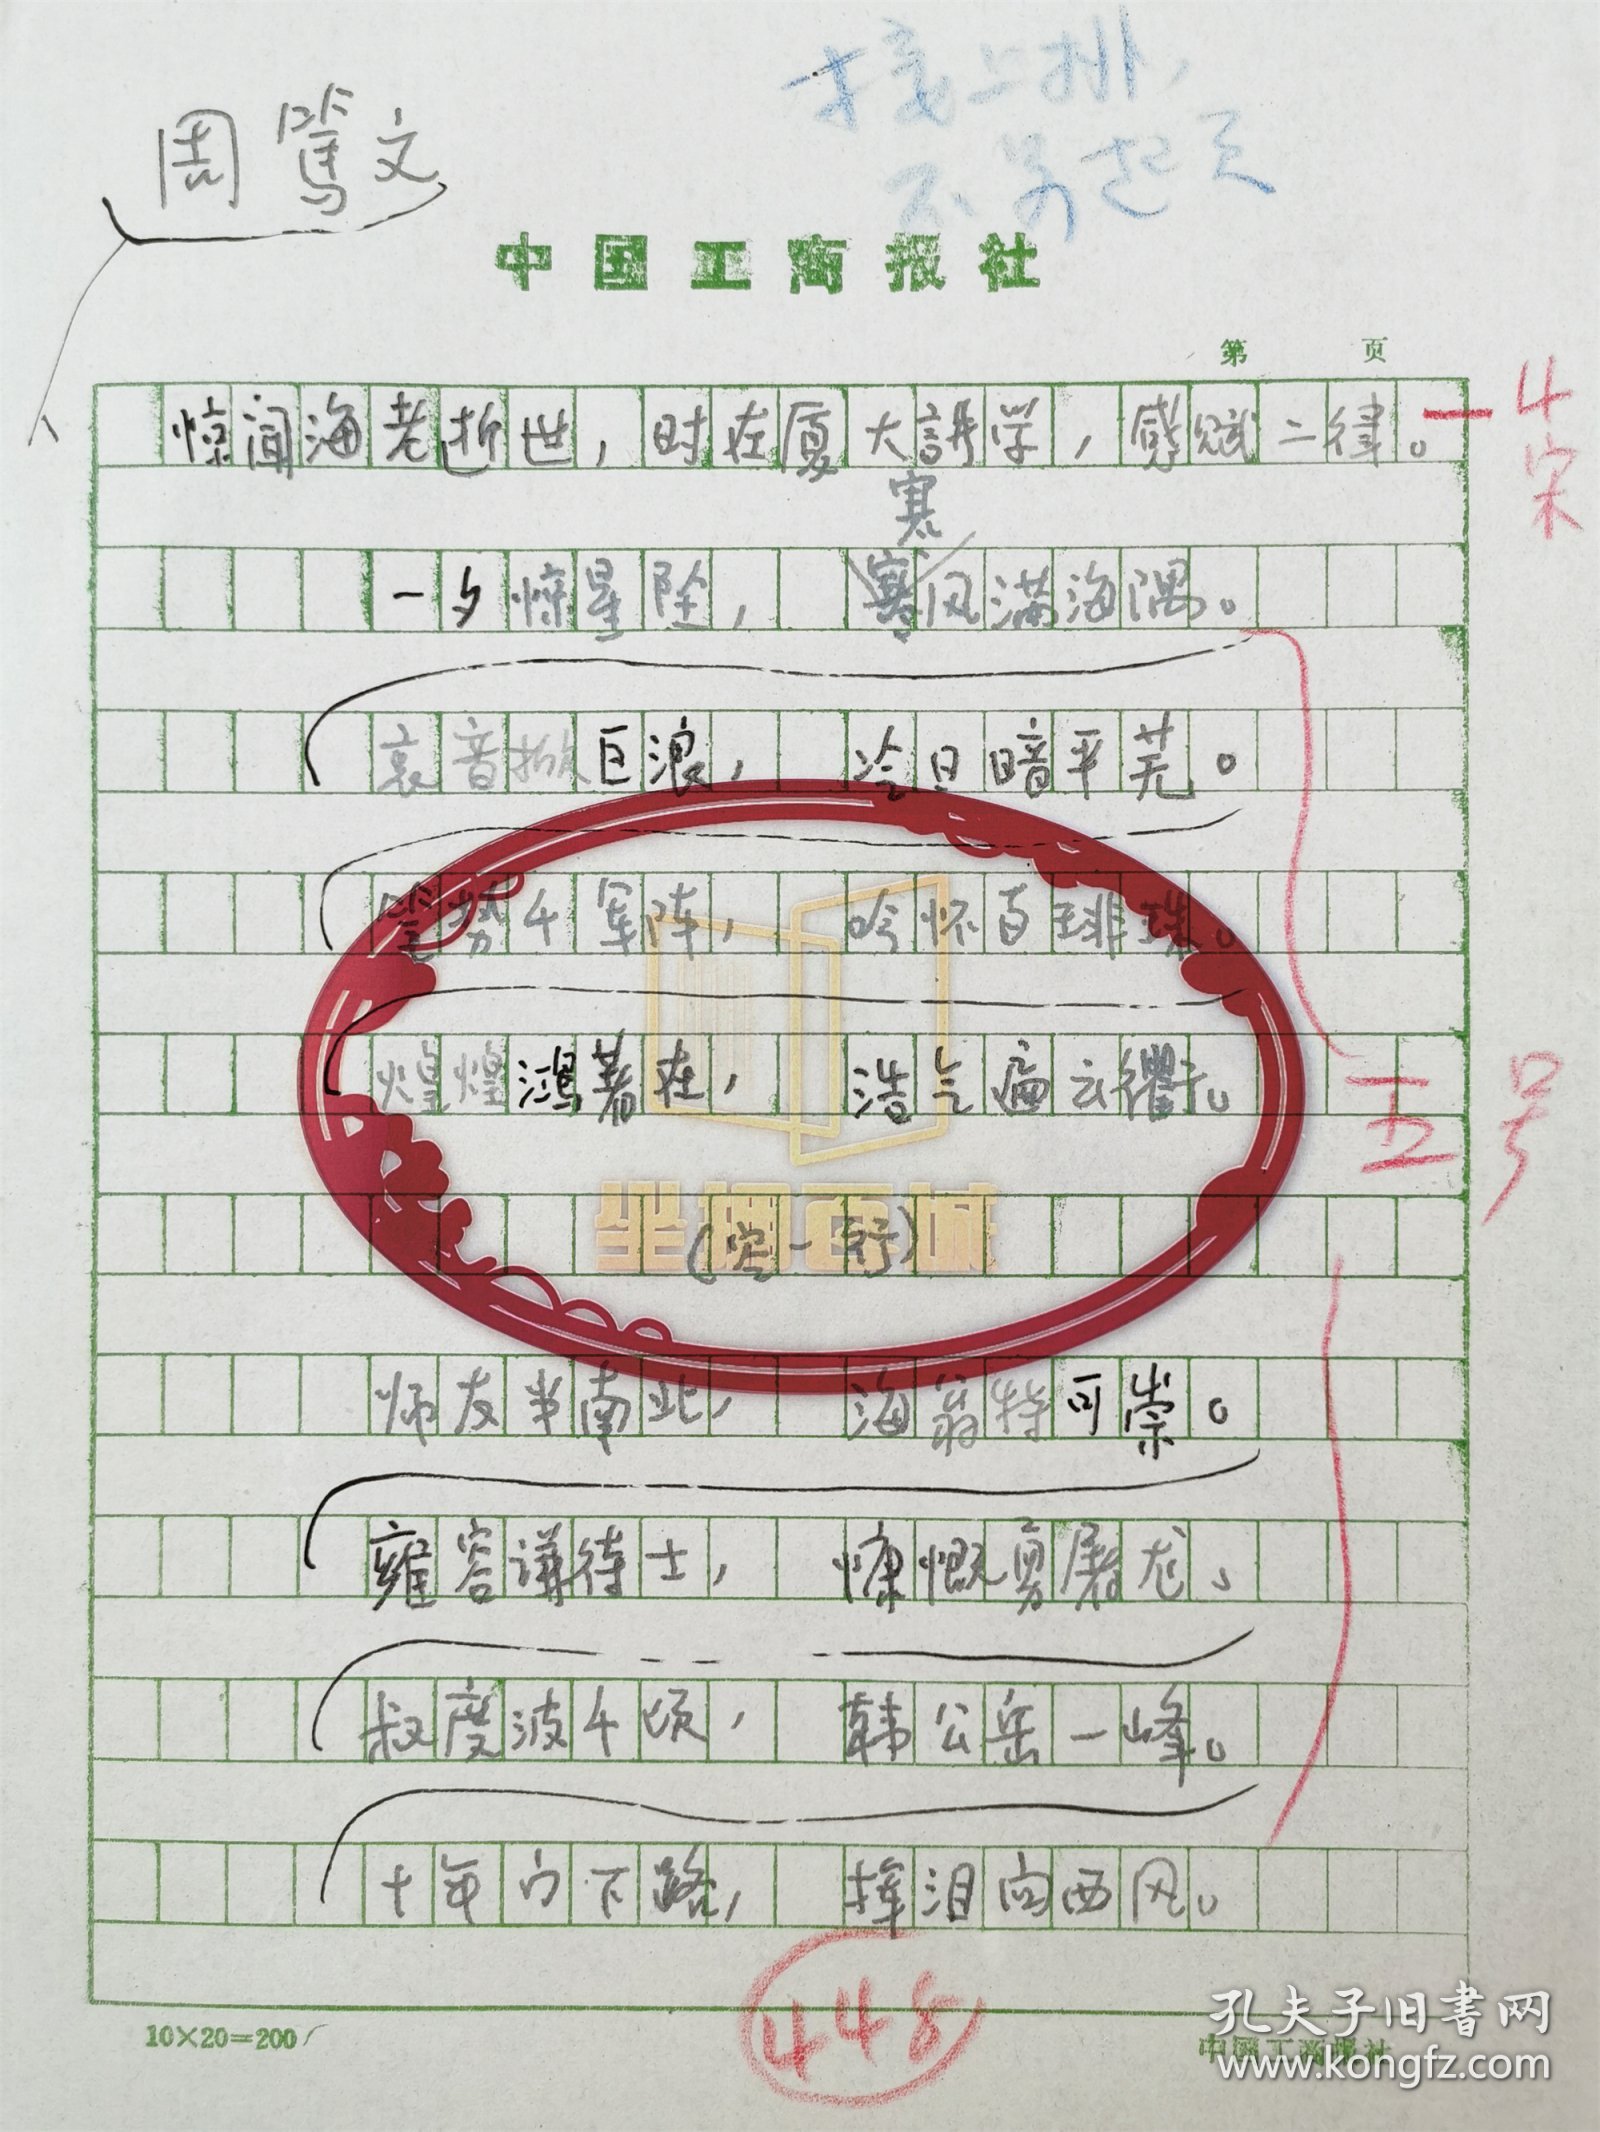 接上排，
不另起页
周笃文
中国工商报社
第 页
惊闻海老逝世，时在厦大讲学，感赋二律。
4宋
寒
一夕惊星坠，寒风满海隅。
哀音掀巨浪，冷日暗平芜。
笔势千军阵，吟怀百琲珠。
煌煌鸿著在，浩气遍云衢。
五号
坐拥百城
(空一行)
师友半南北，海翁特可崇。
雍容谦待士，慷慨勇屠龙、
叔度波千顷，韩公岳一峰。
十年门下路，挥泪向西风。
448
10×20=200
中国工商报社
孔夫子旧书网
www.kongfz.com